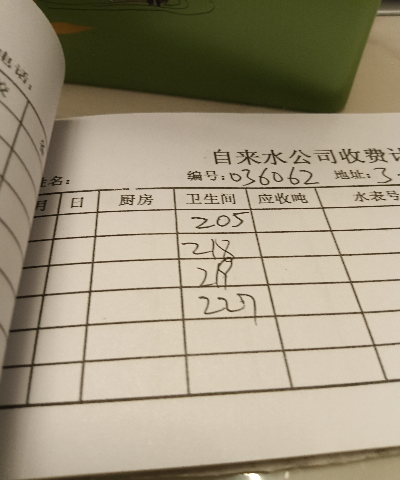 电话:
自来水公司收费
姓名: 编号:036062 地址:3
月 日 厨房 卫生间 应收吨 水表号
205
218
219
227